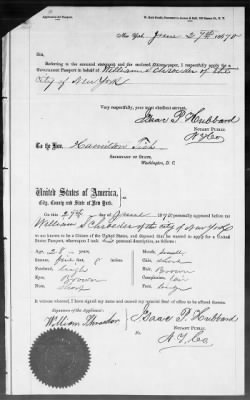 Application for Passport.
New York June 27th 1870
Sir,
Referring to the annexed statement and the enclosed Citizen-paper, I respectfully apply for a
Government Passport in behalf of William Schroeder of the
City of New York
Very respectfully, your most obedient servant,
Isaac P. Hubbard
Notary Public
N.Y. Co
To the Hon. Hamilton Fish
Secretary of State,
Washington, D. C.
United States of America,
City, County and State of New York.
On this 27th day of June 1870 personally appeared before me
William Schroeder of the City of New York
to be known to be a Citizen of the United States, and declared that he wanted to apply for a United
States Passport, whereupon I took his personal description, as follows:
Age, 28 years
Stature, five feet, 8 inches
Forehead, high
Eyes, Brown
Nose,
Mouth, small
Chin,
Hair, Brown
Complexion, fair
Face,
In witness whereof, I have signed my name and caused my official seal of office to be affixed thereto.
Signature of the Applicant:
William Schroeder
Isaac P. Hubbard
Notary Public
N.Y. Co